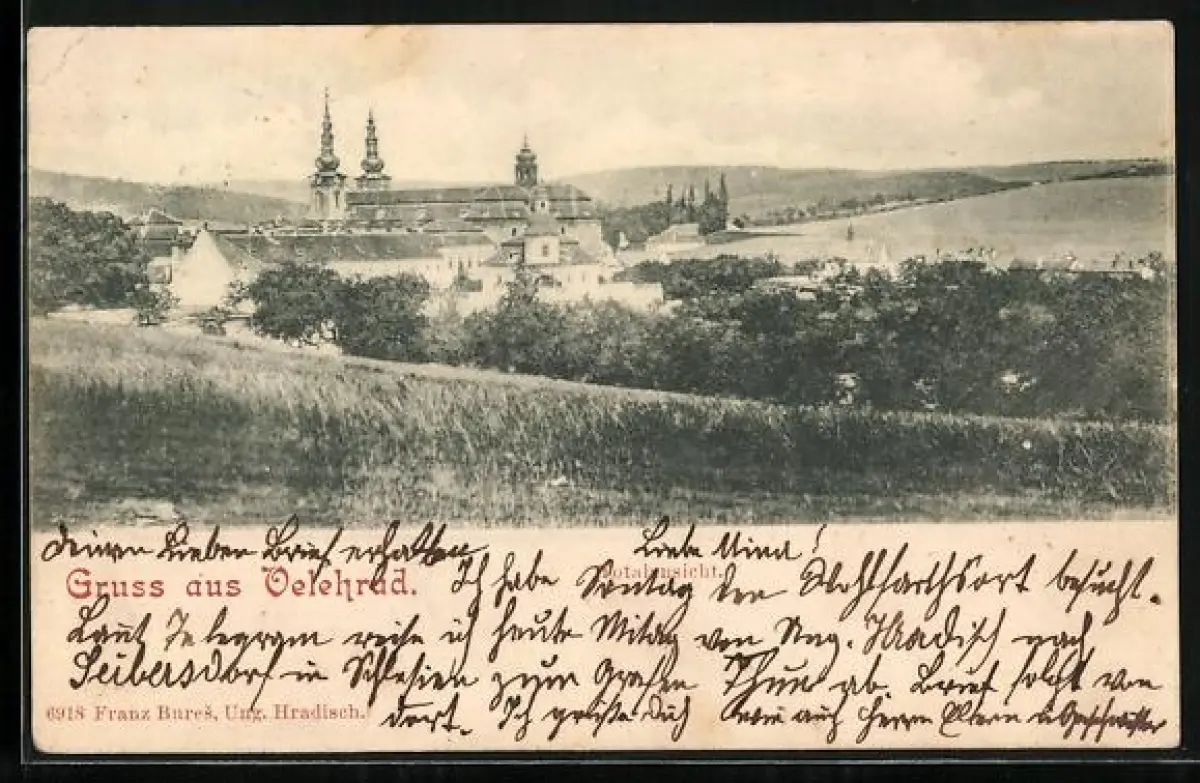 Deinen Lieben Brief erhalten. Liebe Mina!
Gruss aus Velehrad. Totalansicht.
Ich habe Sontag den Wohlfarthsort besucht.
Laut Telegram reise ich heute Mittag von Ung. Hradisch nach
Seibersdorf in Schlesien zum Grafen Thun ab. Brief folgt von
dort. Ich grüße Dich wie auch Herrn Eltern u. Geschwister
6918 Franz Bureš, Ung. Hradisch.